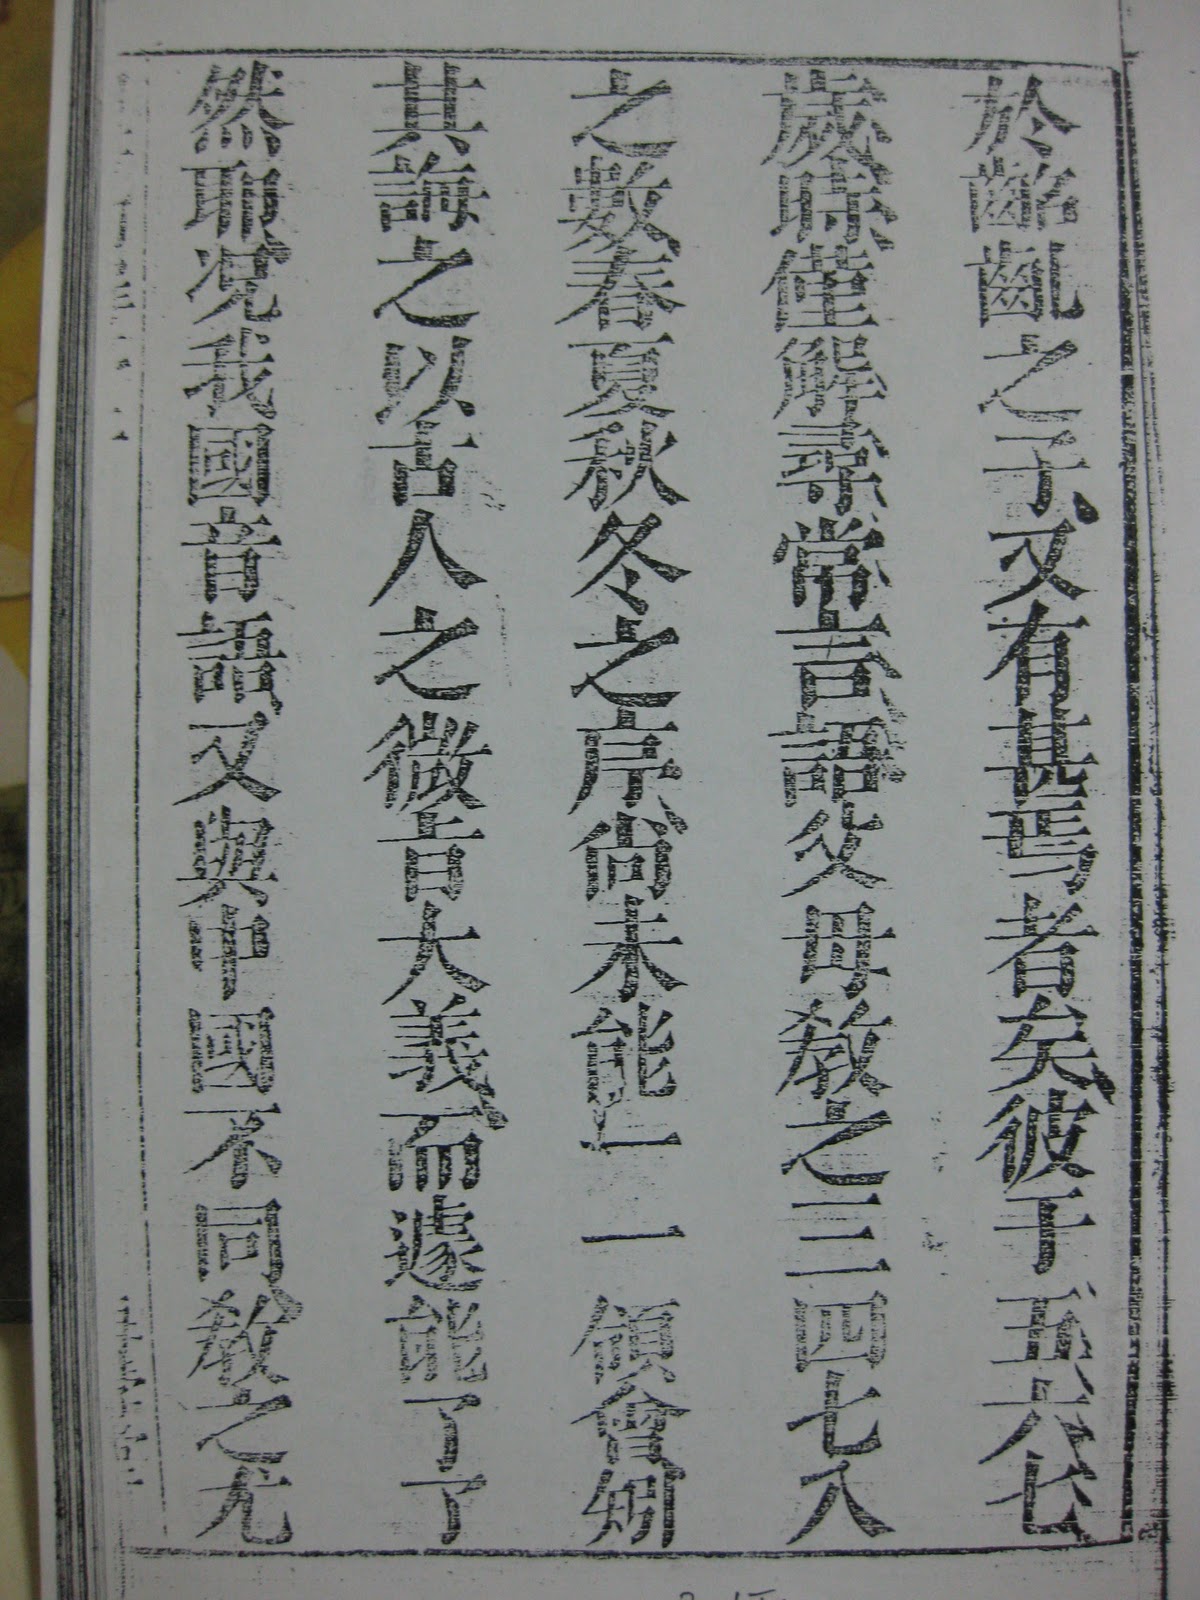 於齠齔之子又有甚焉者矣彼于五六七
歲時僅解尋常言語父母敎之三四七八
之數春夏秋冬之序尚未能一一領會矧
其語之以古人之微言大義而遽能了了
然耶況我國音語又與中國不同敎之尤